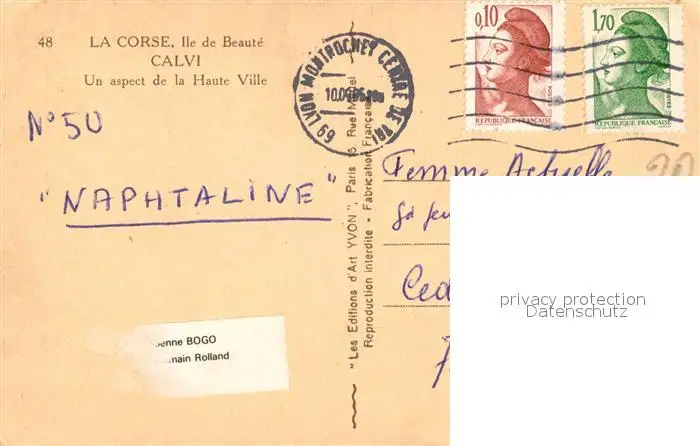 48 LA CORSE, Ile de Beauté
CALVI
Un aspect de la Haute Ville
N° 50
"NAPHTALINE"
enne BOGO
main Rolland
"Les Editions d'Art YVON", Paris 15, Rue Martel
Reproduction interdite - Fabrication Française
69 LYON MONTROCHET CENTRE DE TRI
0,10
POSTES
REPUBLIQUE FRANÇAISE
1,70
POSTES
REPUBLIQUE FRANÇAISE
Femme Actuelle
Ced
privacy protection
Datenschutz